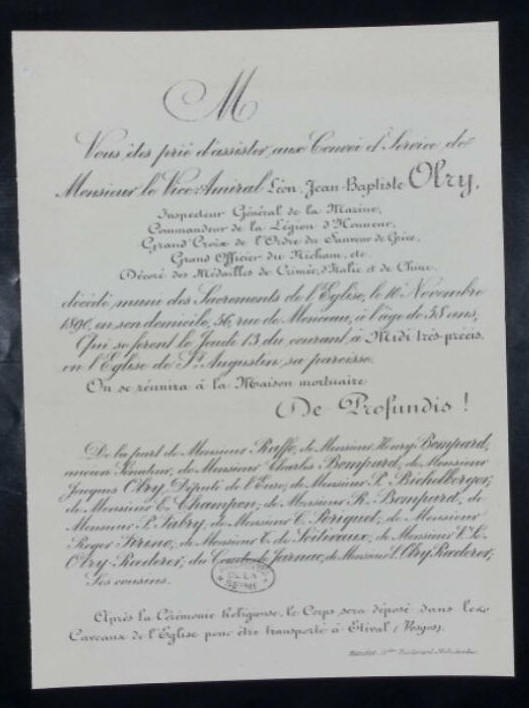 M
Vous êtes prié d'assister aux Convoi & Service de
Monsieur le Vice-Amiral Léon, Jean-Baptiste Olry,
Inspecteur Général de la Marine,
Commandeur de la Légion d'Honneur,
Grand'Croix de l'Ordre du Sauveur de Grèce,
Grand Officier du Nicham, etc.
Décoré des Médailles de Crimée, d'Italie et de Chine,
décédé, muni des Sacrements de l'Eglise, le 10 Novembre
1890, en son domicile, 56, rue de Monceau, à l'âge de 58 ans,
Qui se feront le Jeudi 13 du courant à Midi très-précis,
en l'Eglise de St Augustin, sa paroisse.
On se réunira à la Maison mortuaire.
De Profundis !
De la part de Monsieur Ruffo, de Monsieur Henry Bompard,
ancien Sénateur, de Monsieur Charles Bompard, de Monsieur
Jacques Olry, Député de l'Eure, de Monsieur L. Bichelberger,
de Monsieur E. Champon, de Monsieur R. Bompard, de
Monsieur P. Fabry, de Monsieur C. Périquet, de Monsieur
Roger, de Monsieur C. de, de Monsieur
Olry-Rœderer, du Comte de Jarnac, de Monsieur L. Olry Rœderer,
Ses cousins.
DE LA
SEINE
Après la Cérémonie Religieuse, le Corps sera déposé dans les
Caveaux de l'Eglise pour être transporté à Etival (Vosges).
Boulevard Malesherbes